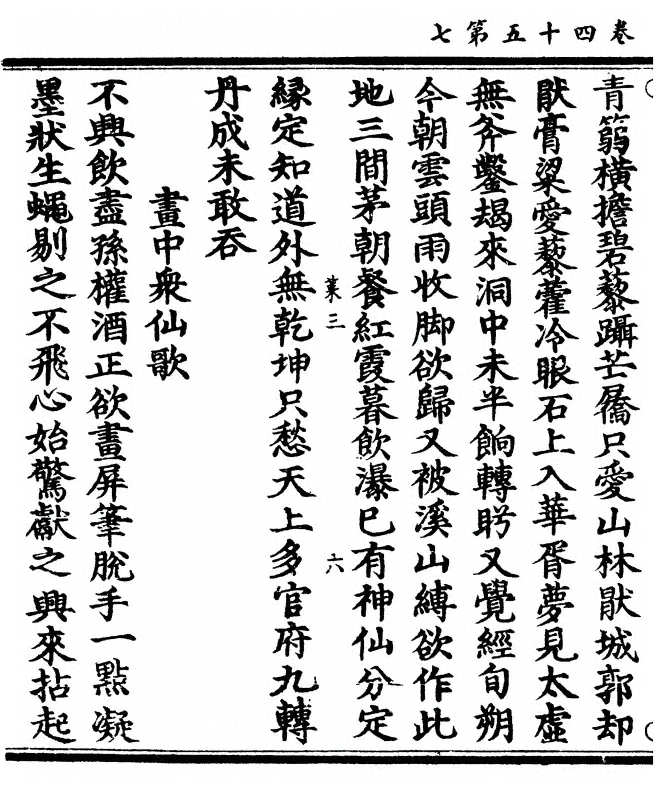 卷四十五第七
青篛橫擔碧藜躡芒屩只愛山林猒城郭却
猒膏粱愛藜藿冷眼石上入華胥夢見太虛
無斧鑿朅來洞中未半餉轉盻又覺經旬朔
今朝雲頭雨收脚欲歸又被溪山縛欲作此
地三間茅朝餐紅霞暮飲瀑巳有神仙分定
菓三 六
緣定知道外無乾坤只愁天上多官府九轉
丹成未敢吞
畫中衆仙歌
不興飲盡孫權酒正欲畫屏筆脫手一點凝
墨狀生蠅剔之不飛心始驚獻之興來拈起